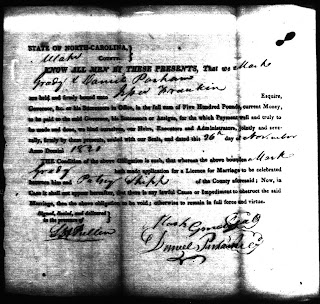 STATE OF NORTH-CAROLINA,
Wake County.
KNOW ALL MEN BY THESE PRESENTS, That we Mark
Grady & Daniel Perham
are held and firmly bound unto Jesse Franklin Esquire,
Governor, &c. or his Successors in Office, in the full sum of Five Hundred Pounds, current Money,
to be paid to the said Governor, his Successors or Assigns, for the which Payment well and truly to
be made and done, we bind ourselves, our Heirs, Executors and Administrators, jointly and seve-
rally, firmly by these presents, sealed with our Seals, and dated this 26th day of November
Anno Domini 1821
The Condition of the above Obligation is such, that whereas the above bounden Mark
Grady hath made application for a Licence for Marriage to be celebrated
between him and Patsey Shipp of the County aforesaid; Now, in
Case it shall not appear hereafter, that there is any lawful Cause or Impediment to obstruct the said
Marriage, then the above obligation to be void; otherwise to remain in full force and virtue.
Signed, Sealed, and delivered
in the presence of
Mark Grady
Daniel